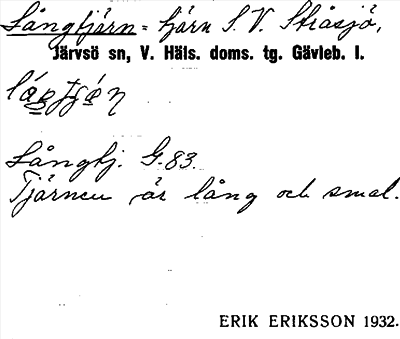 Långtjärn = tjärn S.V. Stråsjö,
Järvsö sn, V. Häls. doms. tg. Gävleb. l.
Långtj. G.83.
Tjärnen är lång och smal.
ERIK ERIKSSON 1932.